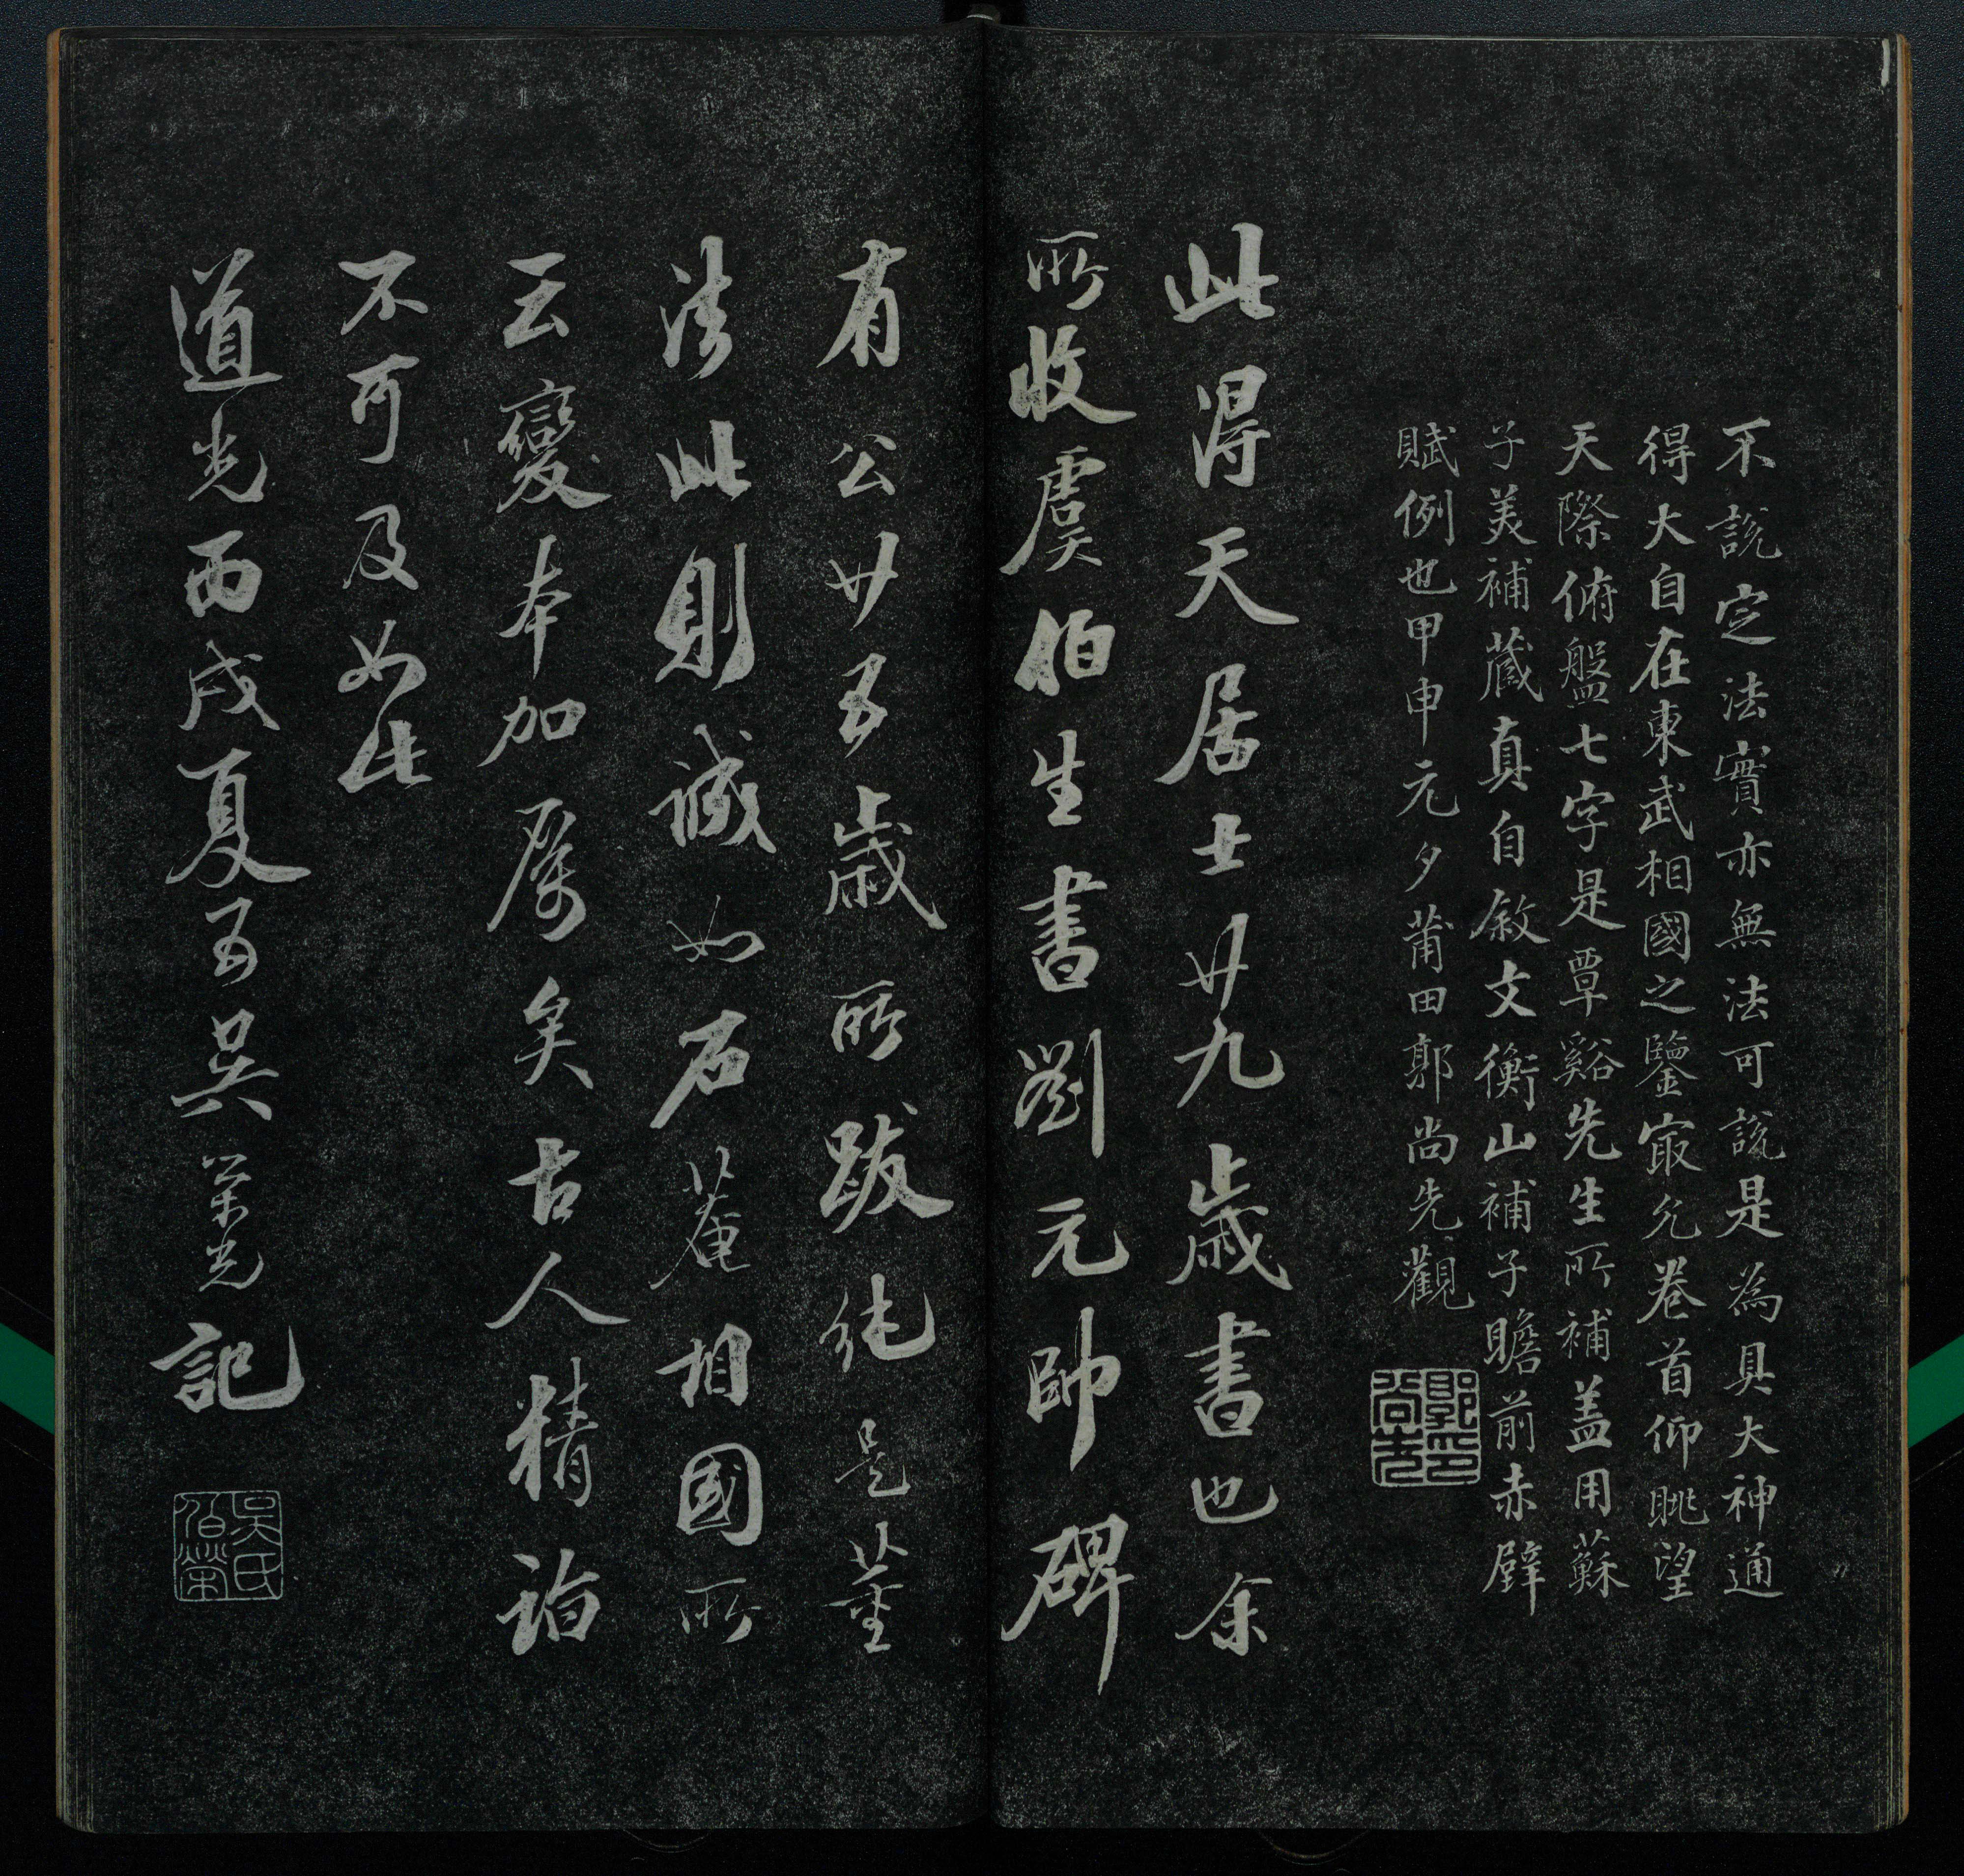 不說定法實亦無法可說是為具大神通
得大自在東武相國之鑒寂允卷首仰眺望
天際俯盤七字是覃谿先生所補盖用蘇
子美補藏真自敘文衡山補子瞻前赤壁
賦例也甲申元夕莆田郭尚先觀
郭印尚先
此得天居士廿九歲書也余
所收虞伯生書劉元帥碑
有公廿五歲所跋純是董
法此則誠如石菴相國所
云變本加厲矣古人精詣
不可及如此
道光丙戌夏五吳榮光記
吳氏伯榮